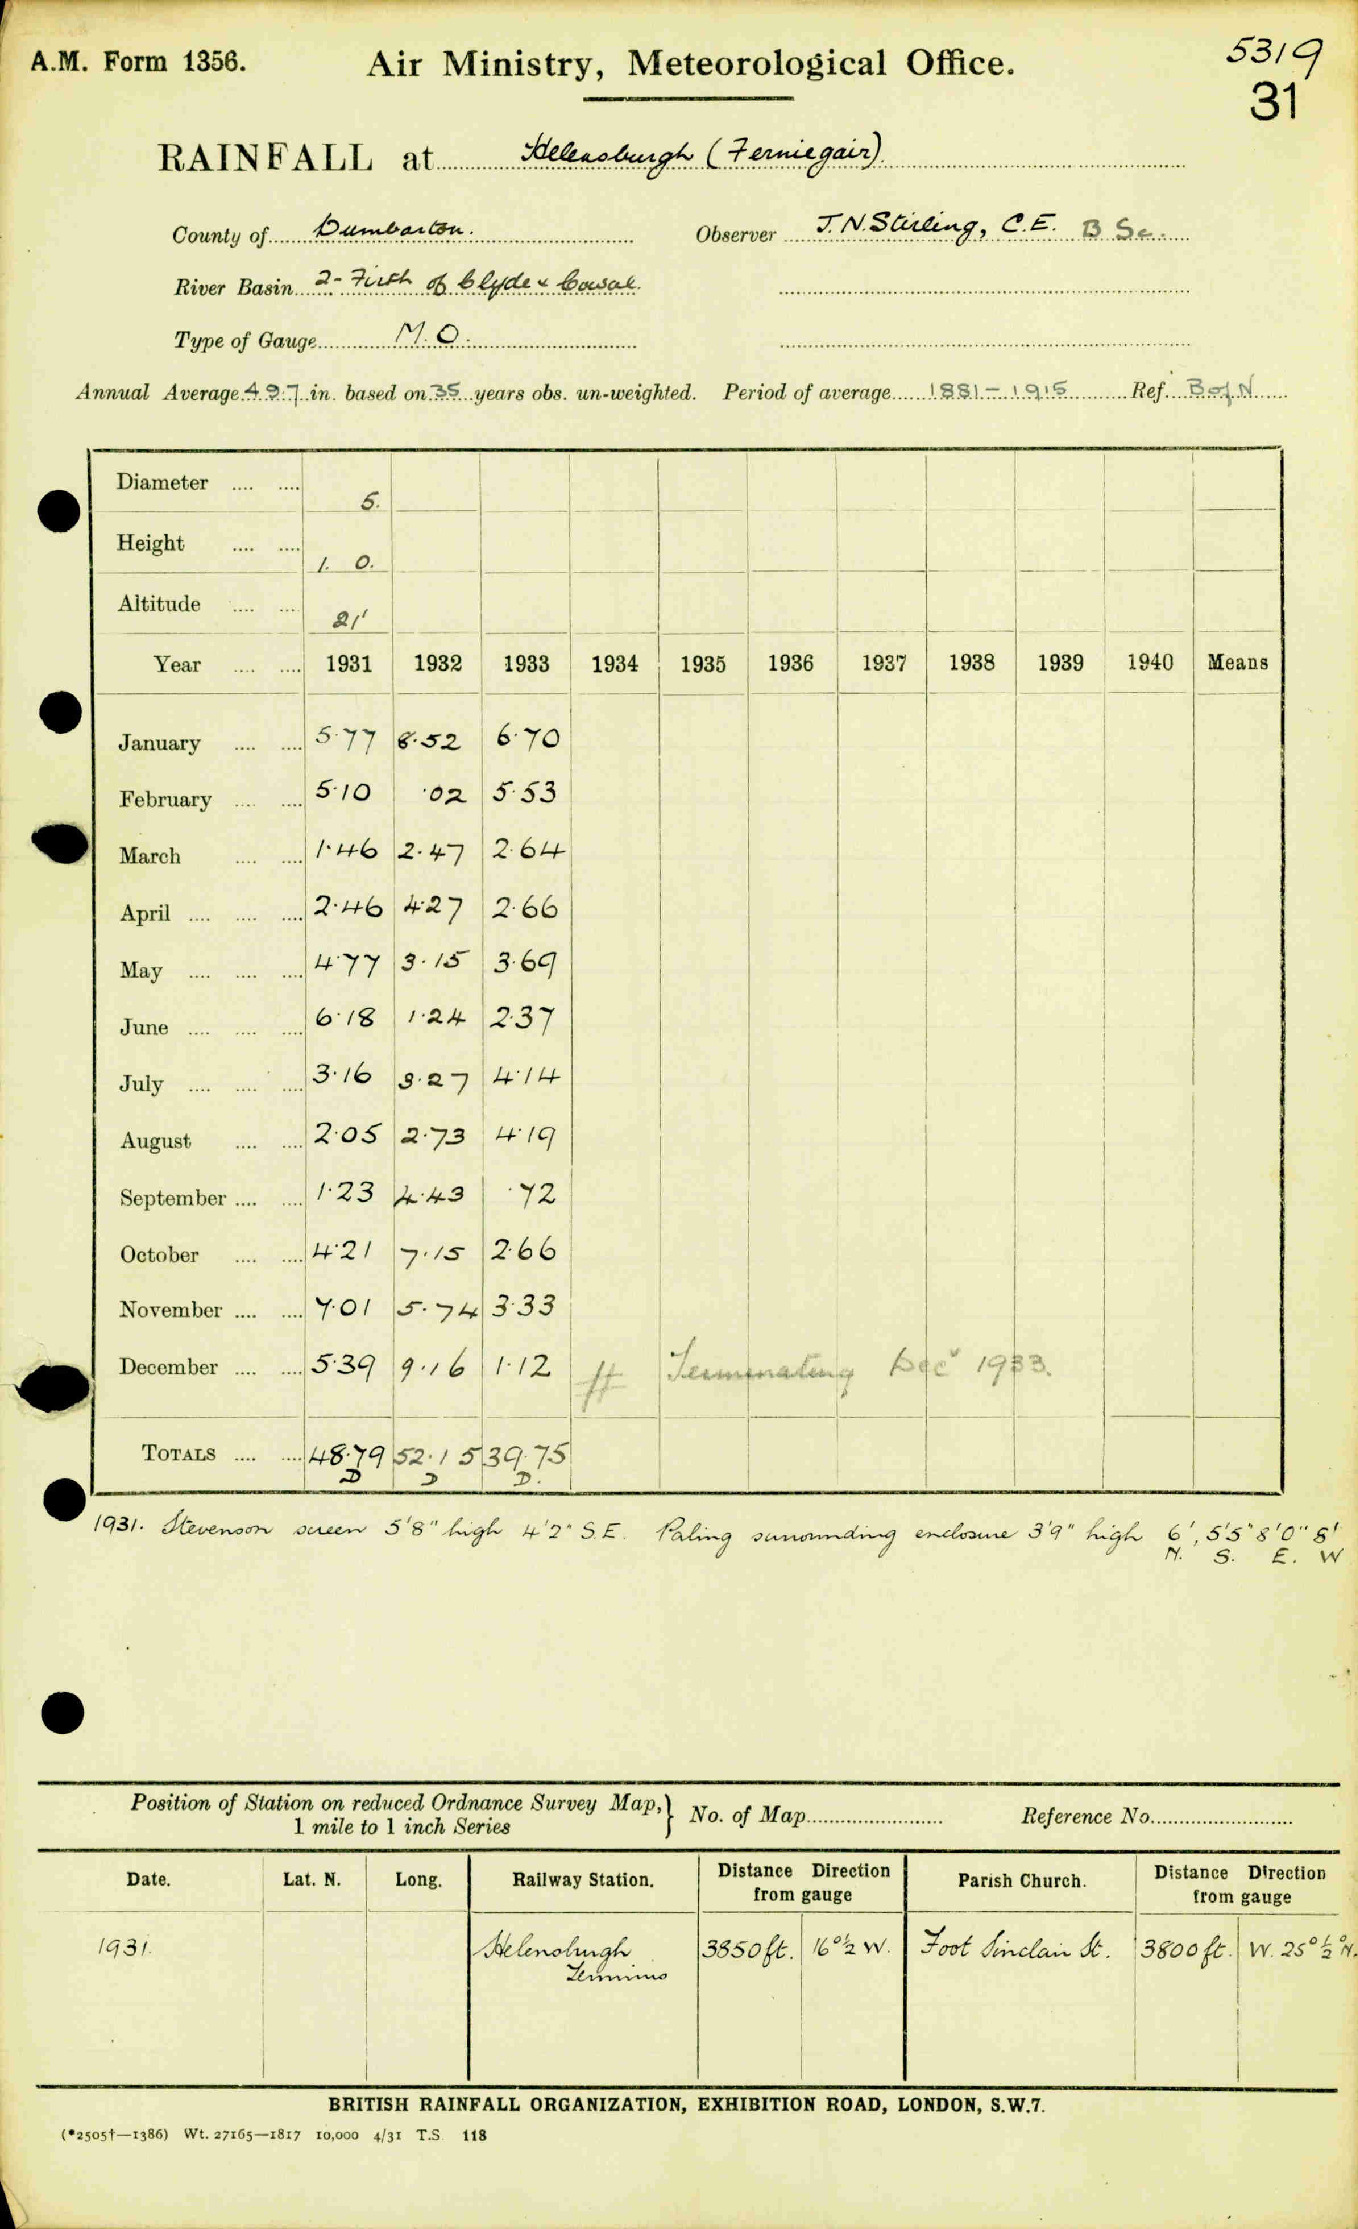 A.M. Form 1356.
Air Ministry, Meteorological Office.
5319
31
RAINFALL at Helensburgh (Ferniegair).
County of Dumbarton.
Observer J.N. Stirling, C.E. B Sc.
River Basin 2- Firth of Clyde & Cowal.
Type of Gauge M.O.
Annual Average 49.7 in. based on 35 years obs. un-weighted. Period of average 1881-1915 Ref. B of N
Diameter 5.
Height 1. 0.
Altitude 21'
Year 1931 1932 1933 1934 1935 1936 1937 1938 1939 1940 Means
January 5.77 8.52 6.70
February 5.10 .02 5.53
March 1.46 2.47 2.64
April 2.46 4.27 2.66
May 4.77 3.15 3.69
June 6.18 1.24 2.37
July 3.16 3.27 4.14
August 2.05 2.73 4.19
September 1.23 4.43 .72
October 4.21 7.15 2.66
November 7.01 5.74 3.33
December 5.39 9.16 1.12 Terminating Decr 1933.
TOTALS 48.79 52.15 39.75
D D D.
1931. Stevenson screen 5'8" high 4'2" S.E. Paling surrounding enclosure 3'9" high 6', 5'5" 8'0" 8'
N. S. E. W
Position of Station on reduced Ordnance Survey Map,
1 mile to 1 inch Series
No. of Map
Reference No.
Date. Lat. N. Long. Railway Station. Distance Direction from gauge Parish Church. Distance Direction from gauge
1931. Helensburgh Terminus 3850 ft. 16°½ W. Foot Sinclair St. 3800 ft. W. 25°½° N.
BRITISH RAINFALL ORGANIZATION, EXHIBITION ROAD, LONDON, S.W.7.
(*2505†—1386) Wt. 27165—1817 10,000 4/31 T.S. 118